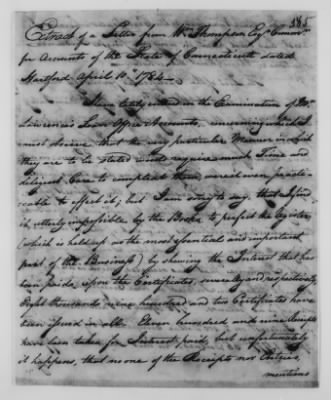 385
Extract of a Letter from Wm Thompson Esqr Commr
for Accounts of the State of Connecticut dated
Hartford April 10. 1784
I am lately entered on the Examination of Mr
Lawrence's Loan Office Accounts, concerning which I
must observe that the very particular Manner in which
they are to be stated will require much Time and
diligent Care to compleat them were it even practi-
cable to effect it; but I am sorry to say, that I find
it utterly impossible by the Books to perfect the Register
(which is held up as the most essential and important
part of the Business) by shewing the Interest that has
been paid upon the Certificates, severally and respectively,
Eight thousand nine hundred and two Certificates have
been issued in all. Eleven hundred and nine Receipts
have been taken for Interest paid, but unfortunately
it happens, that no one of the Receipts nor Entries,
mentions